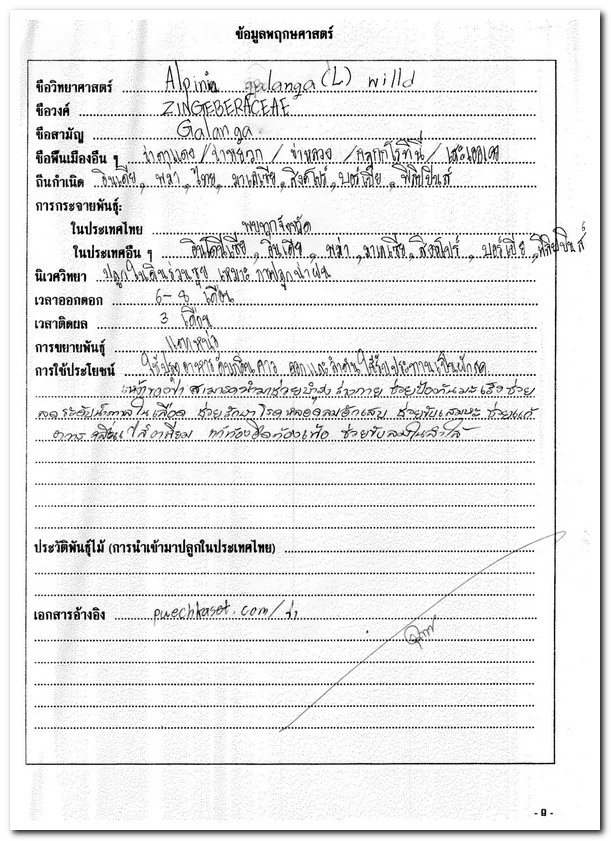 ข้อมูลพฤกษศาสตร์
ชื่อวิทยาศาสตร์ Alpinia galanga (L) willd
ชื่อวงศ์ ZINGEBERACEAE
ชื่อสามัญ Galanga
ชื่อพื้นเมืองอื่น ๆ ข่าตาแดง / ข่าหยวก / ข่าหลวง / / เสะเออเคย
ถิ่นกำเนิด อินเดีย, พม่า, ไทย, มาเลเซีย, สิงคโปร์, บอร์เนียว, ฟิลิปปินส์
การกระจายพันธุ์:
ในประเทศไทย พบทุกจังหวัด
ในประเทศอื่น ๆ อินโดนีเซีย, อินเดีย, พม่า, มาเลเซีย, สิงคโปร์, บอร์เนียว, ฟิลิปปินส์
นิเวศวิทยา ปลูกในดินร่วนซุย เหมาะ
เวลาออกดอก 6-8 เดือน
เวลาติดผล 3 เดือน
การขยายพันธุ์ แยกหน่อ
การใช้ประโยชน์ ใช้ปรุงอาหารดับกลิ่นคาว ดอกและลำต้นใช้รับประทานเป็นผักสด
เหง้าของข่า สามารถนำมาช่วยบำรุงร่างกาย ช่วยป้องกันมะเร็ง ช่วย
ลดระดับน้ำตาลในเลือด ช่วยรักษาโรคหลอดลมอักเสบ ช่วยขับเสมหะ ช่วยแก้
อาการคลื่นไส้อาเจียน แก้ท้องอืดท้องเฟ้อ ช่วยขับลมในลำไส้
ประวัติพันธุ์ไม้ (การนำเข้ามาปลูกในประเทศไทย)
เอกสารอ้างอิง puechkaset.com/ข่า